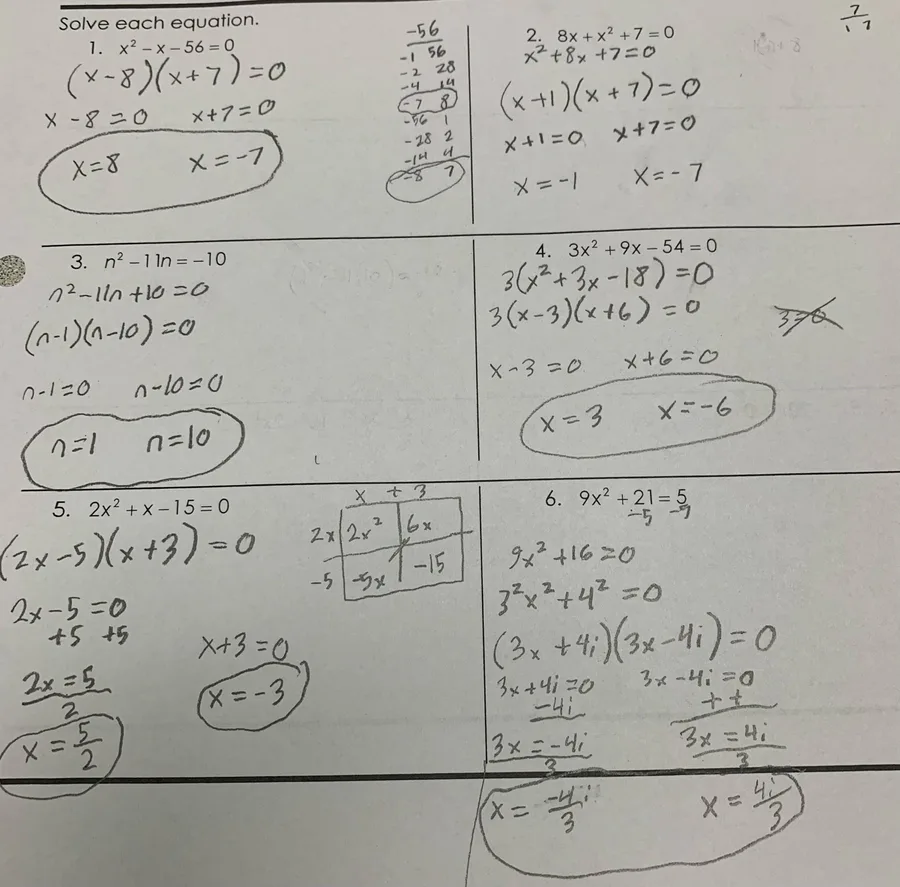 Solve each equation.
1. x² – x – 56 = 0
(x-8)(x+7)=0
x-8=0 x+7=0
x=8 x=-7
-56
-1 56
-2 28
-4 14
-7 8
-56 1
-28 2
-14 4
-8 7
7
1 7
2. 8x + x² + 7 = 0
x²+8x+7=0
(x+1)(x+7)=0
x+1=0 x+7=0
x=-1 x=-7
3. n² – 11n = –10
n²-11n+10=0
(n-1)(n-10)=0
n-1=0 n-10=0
n=1 n=10
4. 3x² + 9x – 54 = 0
3(x²+3x-18)=0
3(x-3)(x+6)=0
3=0
x-3=0 x+6=0
x=3 x=-6
5. 2x² + x – 15 = 0
(2x-5)(x+3)=0
2x-5=0
+5 +5
x+3=0
2x=5
2
x=-3
x=5/2
x + 3
2x 2x² 6x
-5 -5x -15
6. 9x² + 21 = 5
-5 -5
9x²+16=0
3²x²+4²=0
(3x+4i)(3x-4i)=0
3x+4i=0 3x-4i=0
-4i + +
3x=-4i 3x=4i
3 3
x=-4i/3 x=4i/3